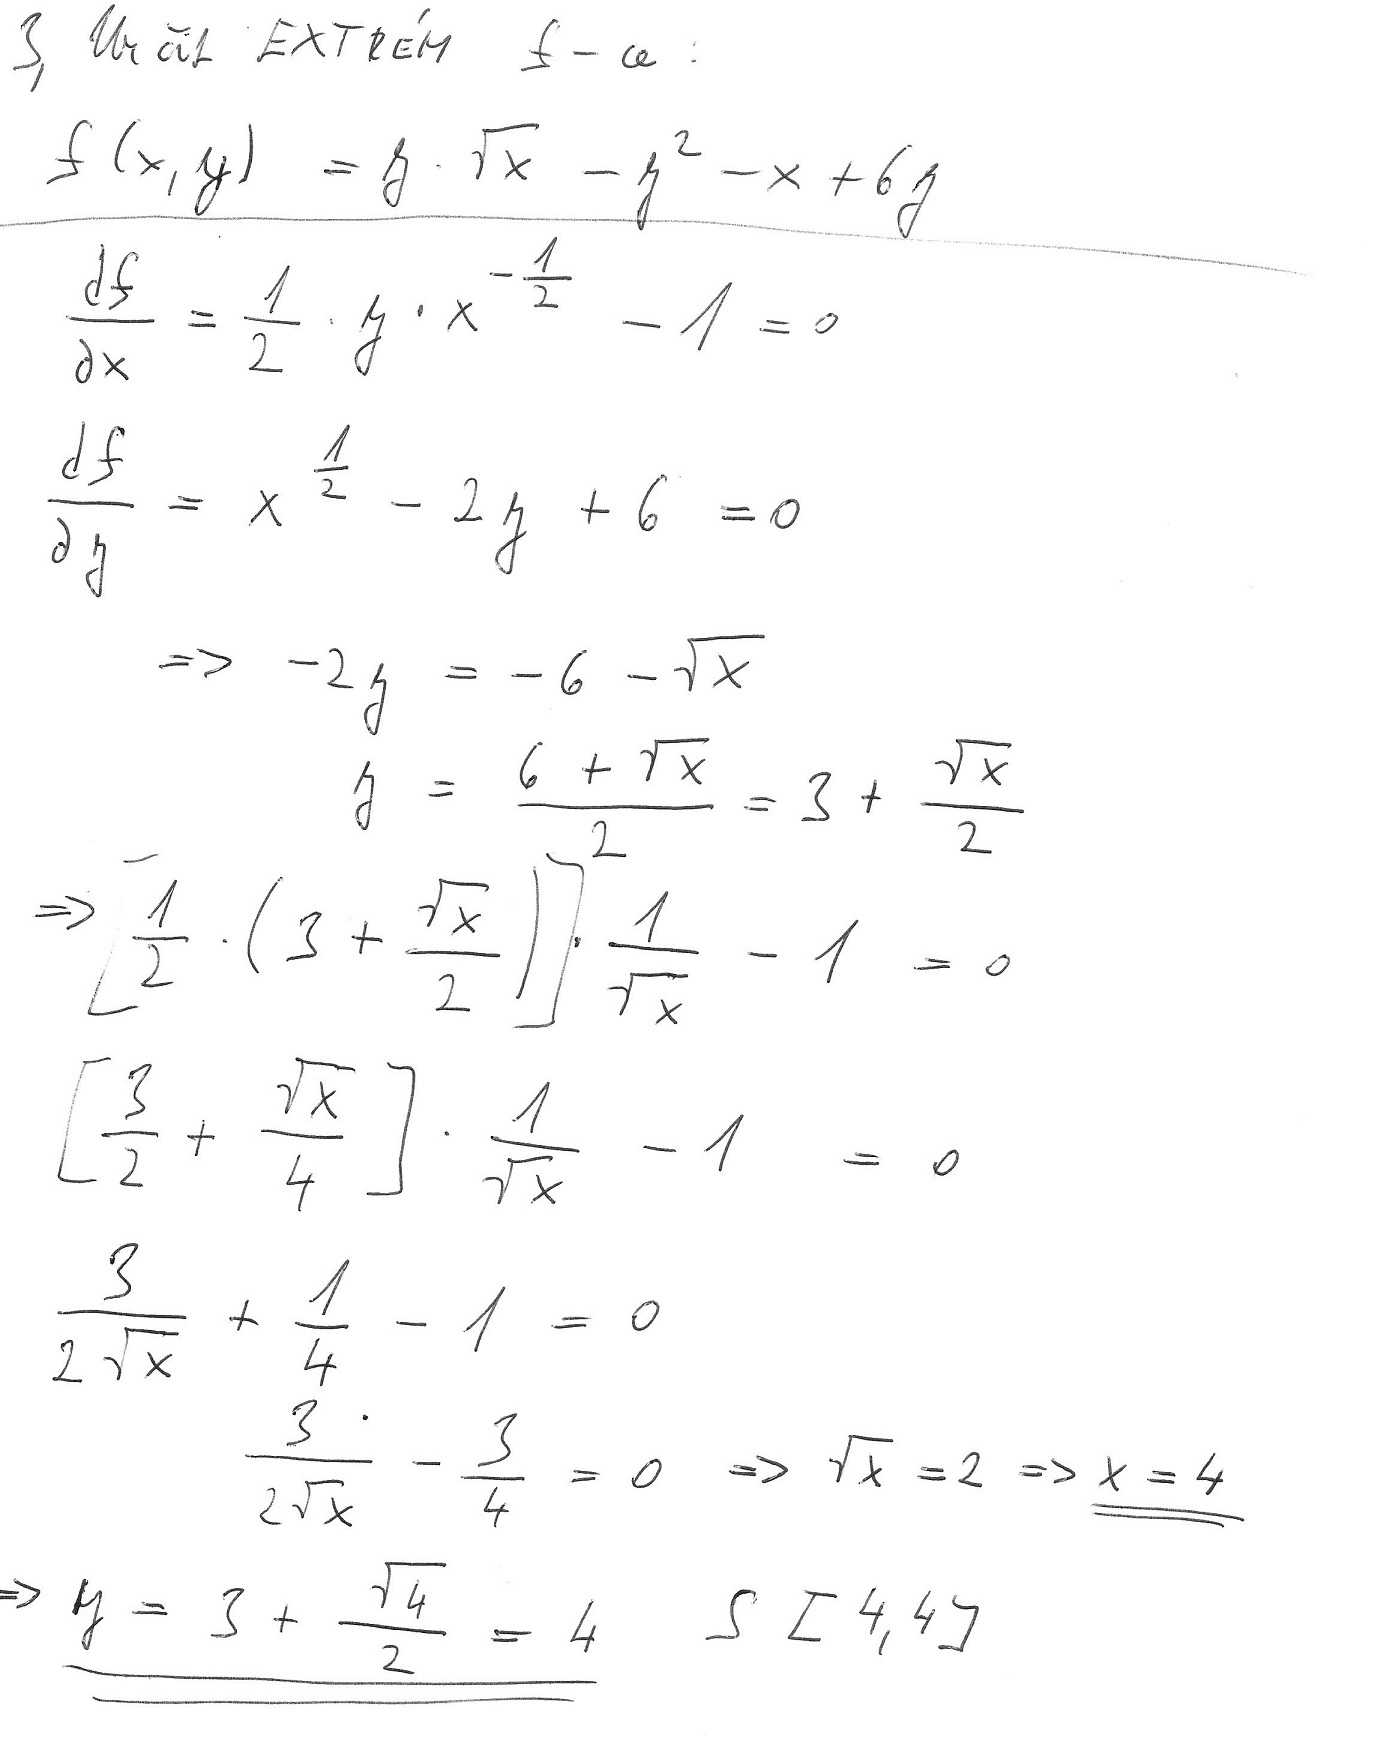 3, Určit EXTRÉM f-ce:
f(x,y) = y · √x - y² - x + 6y
∂f/∂x = 1/2 · y · x^(-1/2) - 1 = 0
∂f/∂y = x^(1/2) - 2y + 6 = 0
=> -2y = -6 - √x
y = (6 + √x)/2 = 3 + √x/2
=> [1/2 · (3 + √x/2)] · 1/√x - 1 = 0
[3/2 + √x/4] · 1/√x - 1 = 0
3/(2√x) + 1/4 - 1 = 0
3/(2√x) - 3/4 = 0 => √x = 2 => x = 4
=> y = 3 + √4/2 = 4 S [4,4]